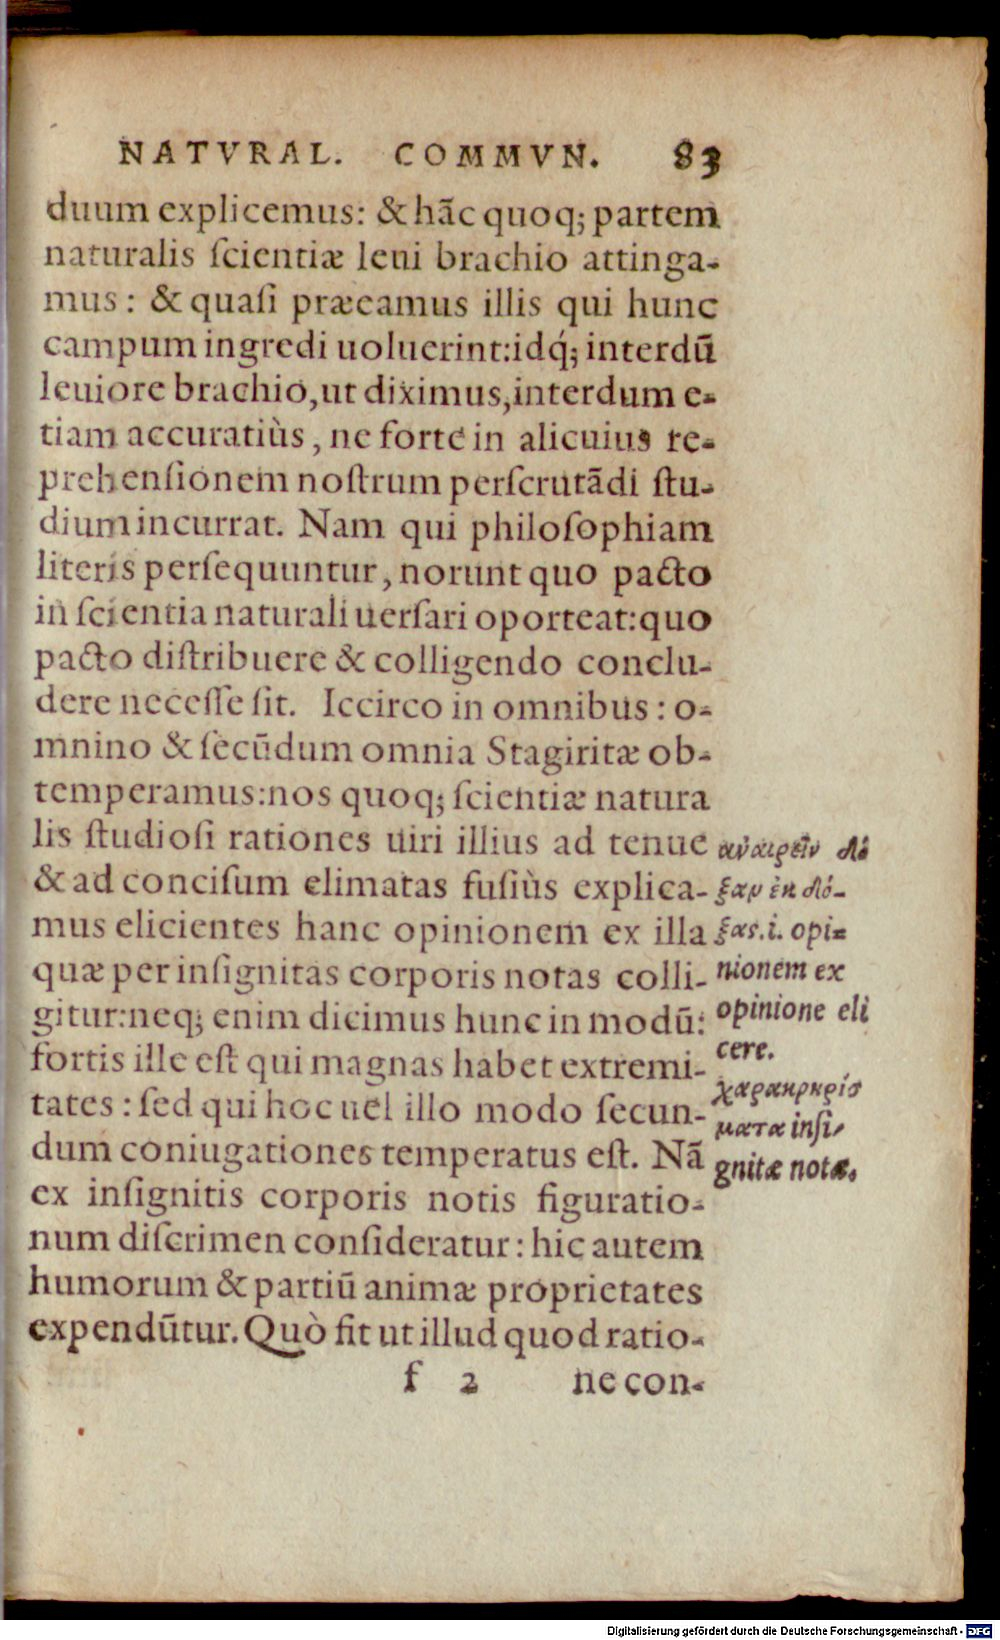 NATVRAL. COMMVN. 83
duum explicemus: & hãc quoq; partem
naturalis ſcientiæ leui brachio attinga-
mus: & quaſi præeamus illis qui hunc
campum ingredi uoluerint: idq́; interdũ
leuiore brachio, ut diximus, interdum e-
tiam accuratiùs, ne forte in alicuius re-
prehenſionem noſtrum perſcrutãdi ſtu-
dium incurrat. Nam qui philoſophiam
literis perſequuntur, norunt quo pacto
in ſcientia naturali uerſari oporteat: quo
pacto diſtribuere & colligendo conclu-
dere neceſſe ſit. Iccirco in omnibus: o-
mnino & ſecũdum omnia Stagiritæ ob-
temperamus: nos quoq; ſcientiæ natura
lis ſtudioſi rationes uiri illius ad tenue
& ad conciſum elimatas fuſiùs explica-
mus elicientes hanc opinionem ex illa
quæ per inſignitas corporis notas colli-
gitur: neq; enim dicimus hunc in modũ:
fortis ille eſt qui magnas habet extremi-
tates: ſed qui hoc uel illo modo ſecun-
dum coniugationes temperatus eſt. Nã
ex inſignitis corporis notis figuratio-
num diſcrimen conſideratur: hic autem
humorum & partiũ animæ proprietates
expendũtur. Quò fit ut illud quod ratio-
f 2 ne con-
ἀναιρεῖν δό
ξαν ἐκ δό-
ξας. i. opi-
nionem ex
opinione eli
cere.
χαρακτηρίσ
ματα inſi-
gnitæ notæ.
Digitalisierung gefördert durch die Deutsche Forschungsgemeinschaft - DFG